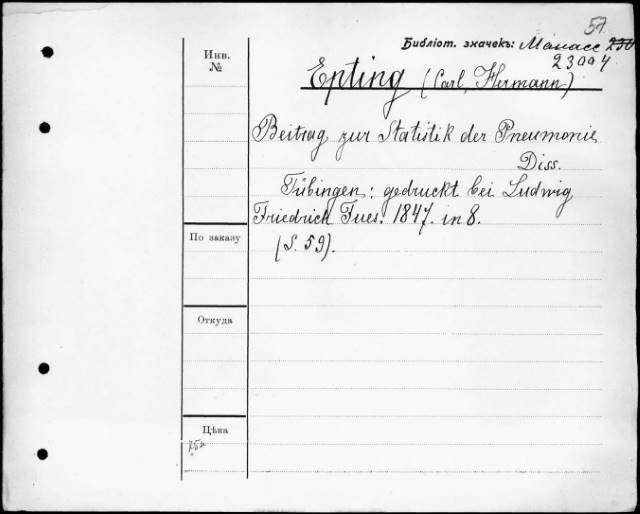 57
Библіот. значекъ: Манасс
23004
Инв.
№
Epting (Carl, Hermann)
Beitrag zur Statistik der Pneumonie
Diss.
Tübingen: gedruckt bei Ludwig
Friedrich Fues. 1847. in 8.
(S. 59).
По заказу
Откуда
Цѣна